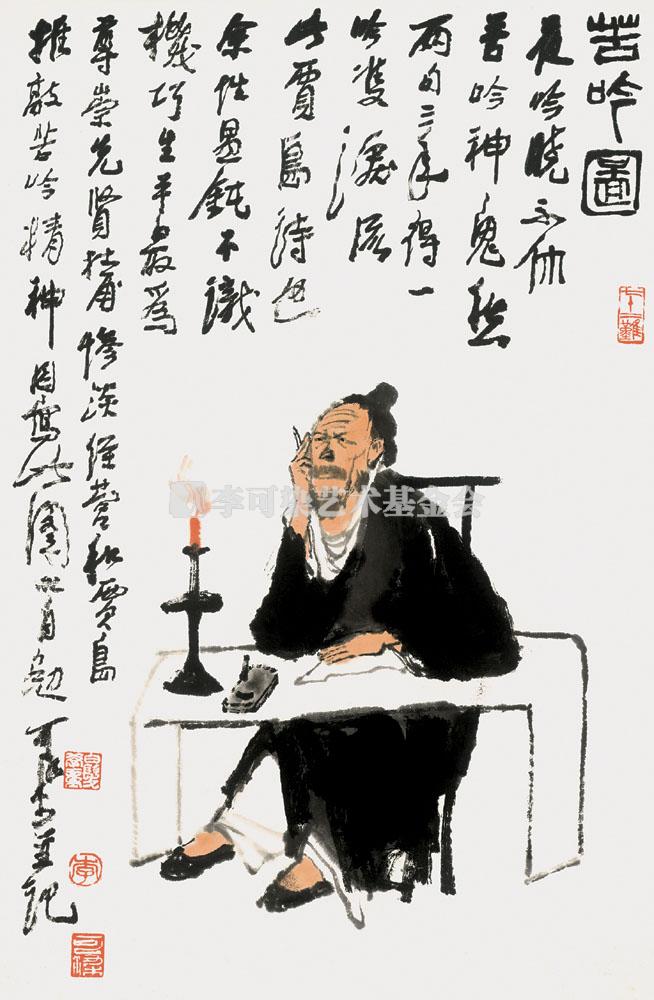 苦吟圖
夜吟曉不休
苦吟神鬼愁
兩句三年得一
吟雙淚流
此賈島詩也
余性愚鈍不識
機巧生平最為
尊崇先賢杜甫慘淡經營和賈島
推敲苦吟精神因寫此圖以自勉 可染並記
七十二難
白髮學童
李
可染
李可染艺术基金会